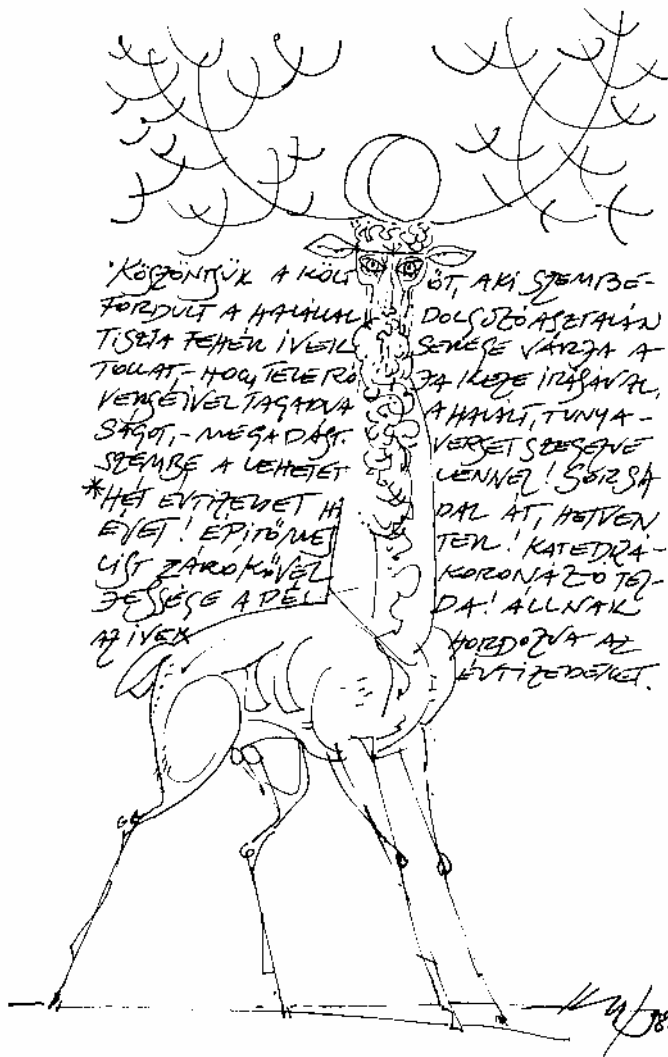 "KÖSZÖNTJÜK A KÖLTŐT, AKI SZEMBE-
FORDULT A HALÁLLAL DOLGOZÓASZTALÁN
TISZTA FEHÉR ÍVEK SEREGE VÁRJA A
TOLLAT - HOGY TELE RÓJA KEZE ÍRÁSÁVAL,
VERSEIVEL TAGADVA A HALÁLT, TUNYA-
SÁGOT, - MEGADÁST. VERSET SZEGEZVE
SZEMBE A LEHETETLENNEL! SORSA
*HÉT ÉVTIZEDET HÍDAL ÁT, HETVEN
ÉVET! ÉPÍTŐMESTER! KATEDRÁ-
LIST ZÁRÓKŐVEL KORONÁZÓ TEL-
JESSÉGE A PÉLDA! ÁLLNAK
AZ ÍVEK HORDOZVA AZ
ÉVTIZEDEKET.